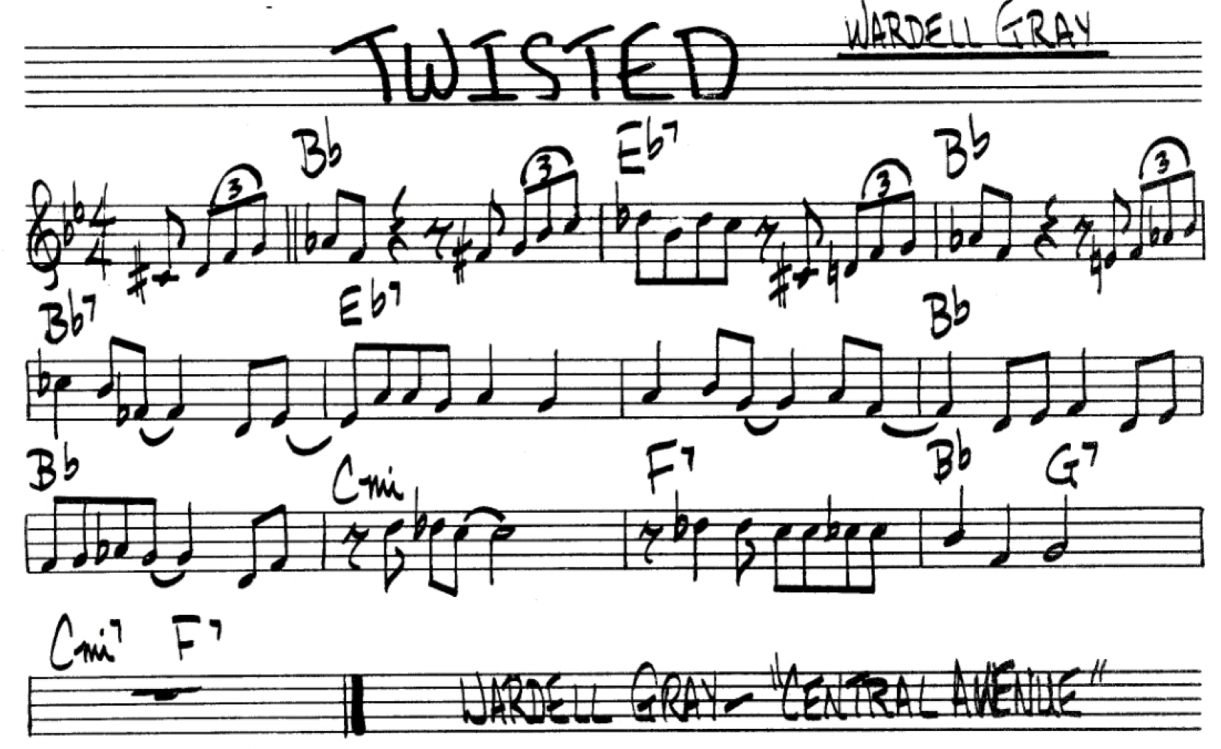 TWISTED
WARDELL GRAY
Bb Eb7 Bb
4
4
3 3 3 3
Bb7 Eb7 Bb
Bb Cmi F7 Bb G7
Cmi7 F7
WARDELL GRAY- "CENTRAL AVENUE"